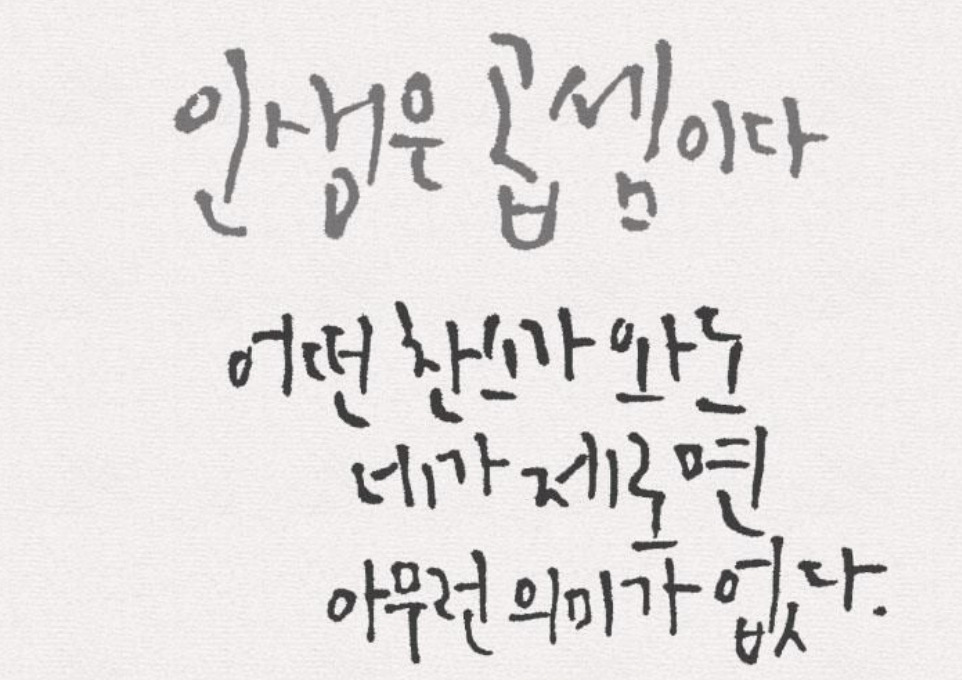 인생은 곱셈이다
어떤 찬스가 와도
네가 제로면
아무런 의미가 없다.